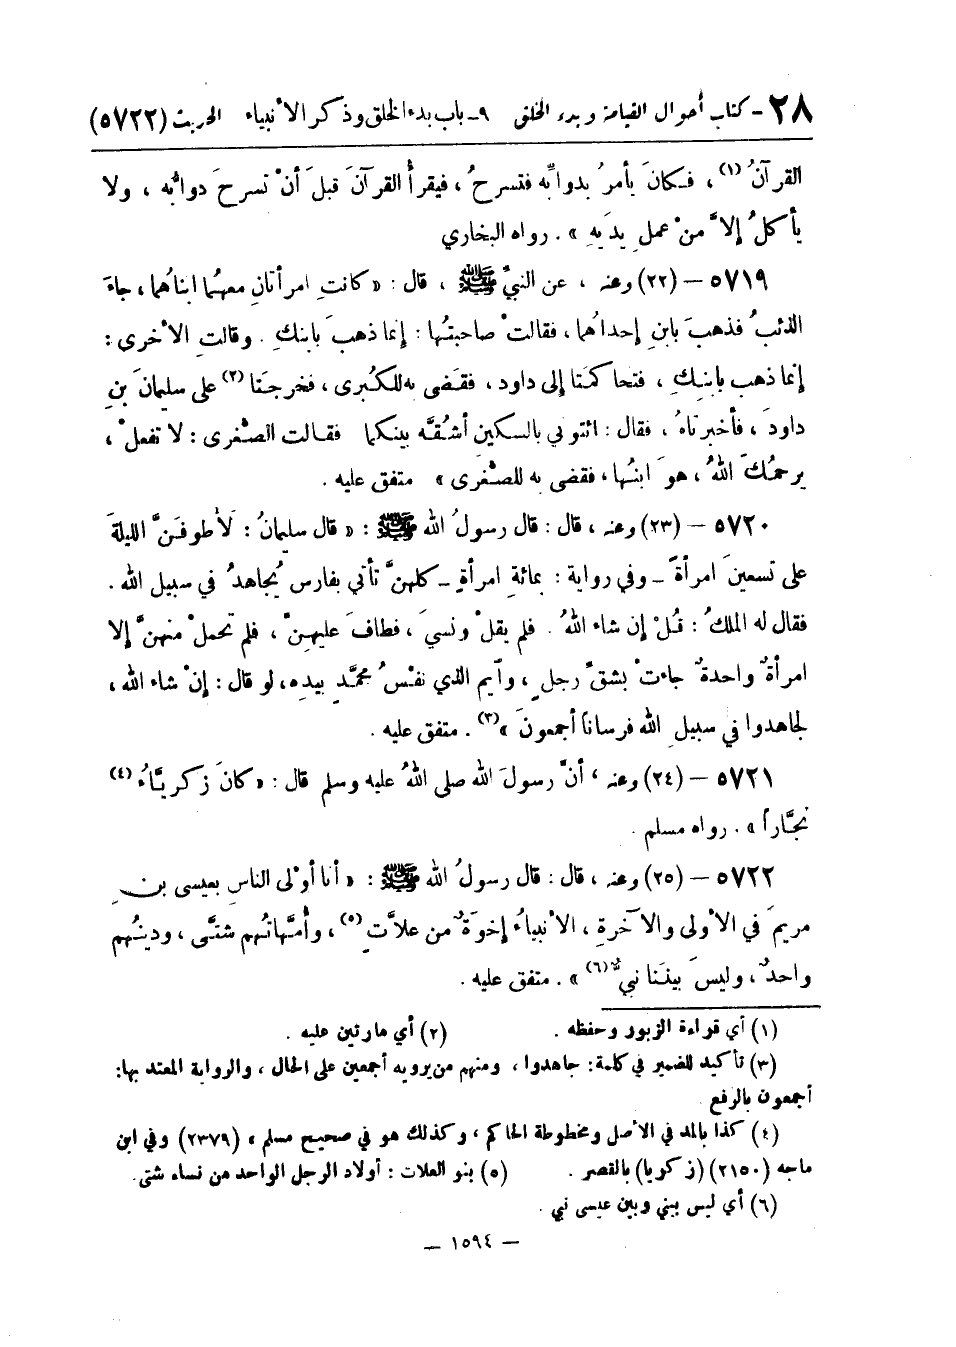 ٢٨ – كتاب أحوال القيامة وبدء الخلق ٩ – باب بدء الخلق وذكر الأنبياء الحديث (٥٧٢٢)
القرآنُ (١) ، فكانَ يأمرُ بدوابِّه فتسرحُ ، فيقرأُ القرآنَ قبلَ أنْ تسرحَ دوابُّه ، ولا
يأكلُ إِلاَّ منْ عملِ يدَيهِ » . رواه البخاري
٥٧١٩ – (٢٢) وعنه ، عن النبيِّ ﷺ ، قال : « كانتِ امرأتانِ معهُما ابناهُما ، جاءَ
الذئبُ فذهبَ بابنِ إِحداهُما ، فقالتْ صاحبتُها : إِنما ذهبَ بابنكِ . وقالتِ الأخرى :
إِنما ذهب بابنِكِ ، فتحاكمَتا إلى داود ، فقَضى به للكُبرى ، فخرجَتا (٢) على سليمانَ بنِ
داودَ ، فأخبرتاهُ ، فقال : ائتوني بالسكينِ أشُقَّه بينَكما فقالت الصُّغرى : لا تفعلْ ،
يرحمُكَ اللهُ ، هوَ ابنُها ، فقضى به للصُّغرَى » متفق عليه .
٥٧٢٠ – (٢٣) وعنه ، قال : قال رسولُ الله ﷺ : « قال سليمانُ : لأطوفَنَّ الليلةَ
على تسعينَ امرأةً – وفي رواية : بمائةِ امرأةٍ – كلهنَّ تأتي بفارس يُجاهدُ في سبيل الله .
فقال له الملكُ : قُلْ إِن شاء اللهُ . فلم يقلْ ونسيَ ، فطافَ عليهِنَّ ، فلم تحملْ منهنَّ إِلا
امرأةٌ واحدةٌ جاءتْ بشقِّ رجلٍ ، وأيم الذي نفسُ محمَّدٍ بيدِه ، لو قال : إنْ شاء الله ،
لجاهدوا في سبيلِ الله فرساناً أجمعونَ » (٣) . متفق عليه .
٥٧٢١ – (٢٤) وعنه ، أنَّ رسولَ الله صلى اللهُ عليه وسلم قال : « كانَ زكريَّاءُ (٤)
نجَّاراً » . رواه مسلم .
٥٧٢٢ – (٢٥) وعنه ، قال : قال رسولُ الله ﷺ : « أنا أوْلى الناسِ بعيسى بنِ
مريمَ في الأولى والآخرةِ ، الأنبياءُ إخوَةٌ من علاَّتٍ (٥) ، وأمَّهاتُهم شتَّى ، ودينُهم
واحدٌ ، وليسَ بيننَا نبيٌّ (٦) » . متفق عليه .
(١) أي قراءة الزبور وحفظه . (٢) أي مارتين عليه .
(٣) تأكيد للضمير في كلمة : جاهدوا ، ومنهم من يرويه أجمعين على الحال ، والرواية المعتد بها :
أجمعون بالرفع
(٤) كذا بالمد في الأصل ومخطوطة الحاكم ، وكذلك هو في صحيح مسلم » (٢٣٧٩) وفي ابن
ماجه (٢١٥٠) (زكريا) بالقصر . (٥) بنو العلات : أولاد الرجل الواحد من نساء شتى .
(٦) أي ليس بيني وبين عيسى نبي .
– ١٥٩٤ –